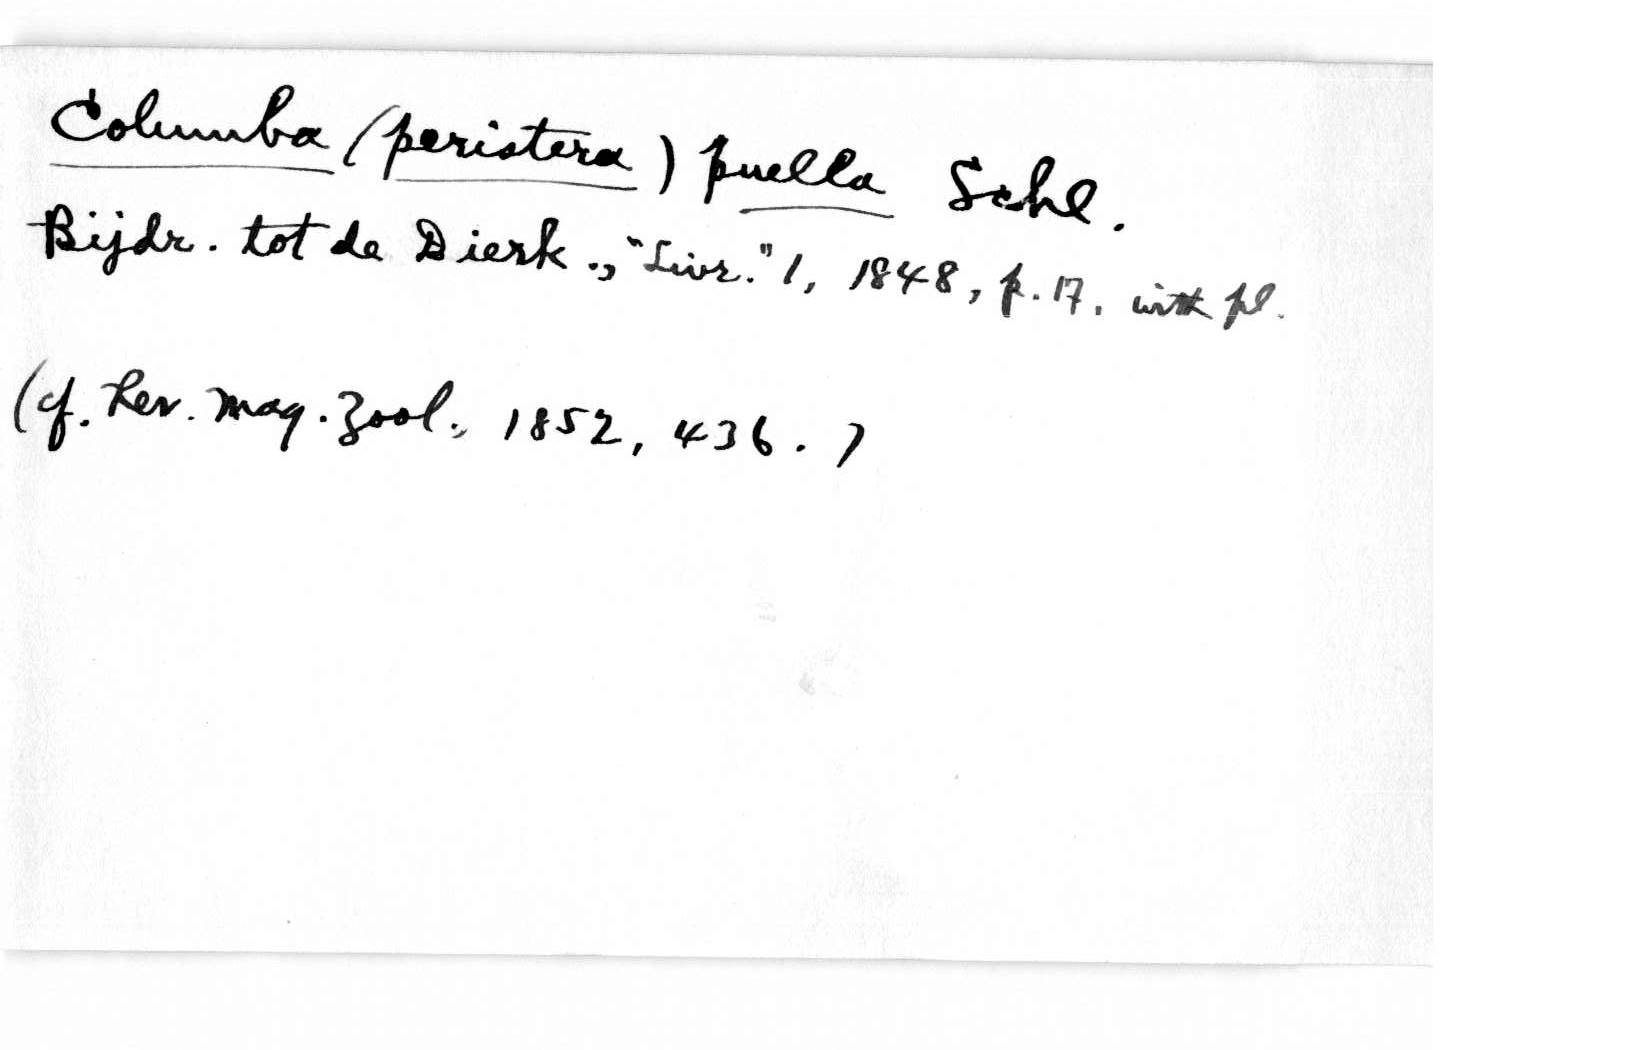 Columba (peristera) puella Schl.
Bijdr. tot de Dierk., "Livr." 1, 1848, p. 17, with pl.
(cf. Rev. Mag. Zool., 1852, 436.)